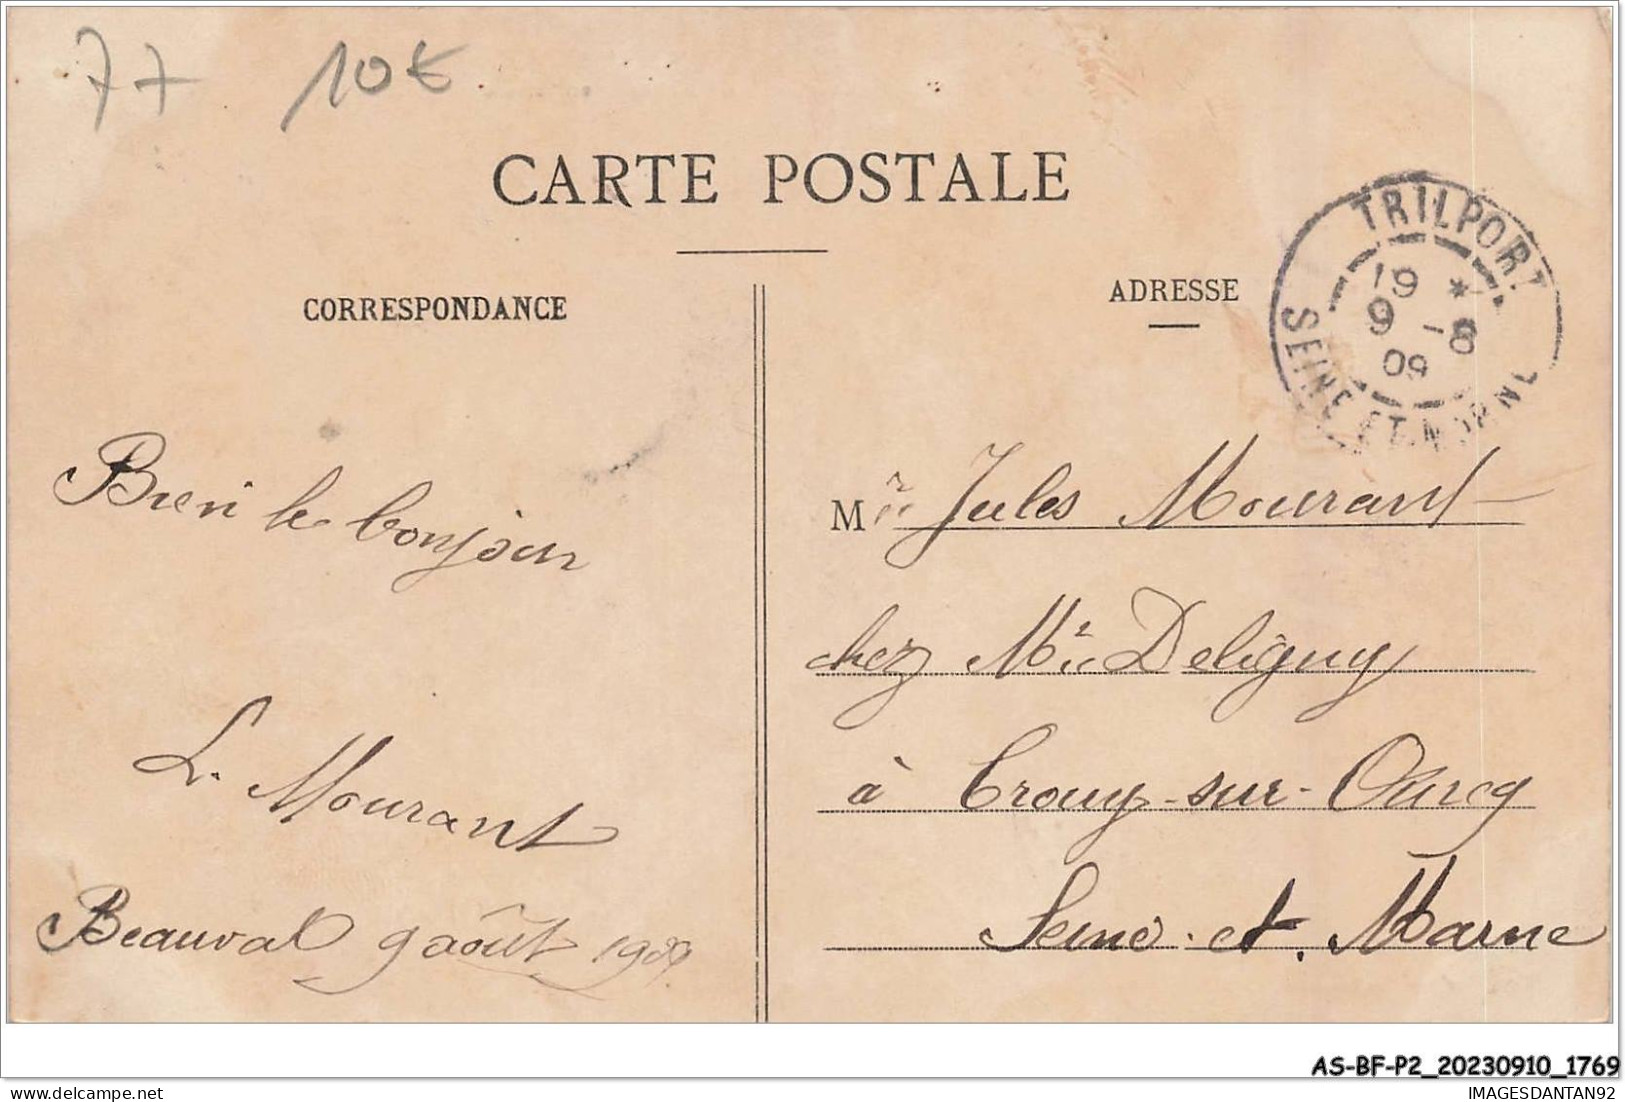 77 10€
CARTE POSTALE
CORRESPONDANCE
ADRESSE
TRILPORT
19 *
9 -8
09
SEINE-ET-MARNE
Bien le bonjour
L. Mourant
Beauval 9 août 1909
M Jules Mourant
chez Mr Deligny
à Crouy-sur-Ourcq
Seine et Marne
AS-BF-P2_20230910_1769
IMAGESDANTAN92